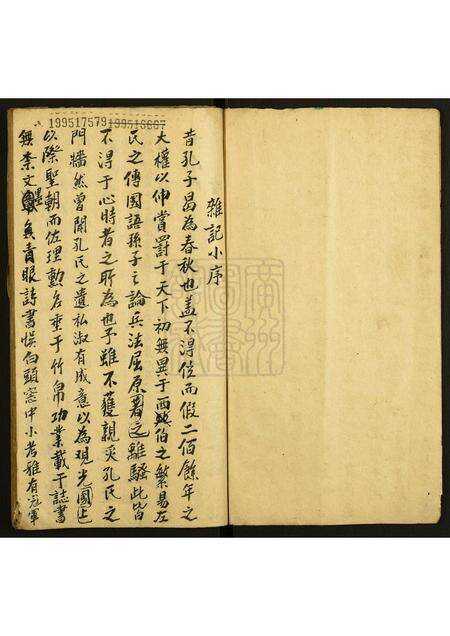 199517579 199516667
雜記小序
昔孔子曷為春秋也蓋不得位而假二佰餘年之
大權以伸賞罰于天下初無異于西伯之繁易左
民之傳國語孫子之論兵法屈原著之離騷此皆
不得于心時者之所為也予雖不獲親炙孔氏之
門牆然曾聞孔氏之遺私淑有成意以為觀光國上
以際聖朝而佐理勲名垂于竹帛功業載于誌書
無柰文負青眼詩書悮白頭窓中小考雅有冠軍